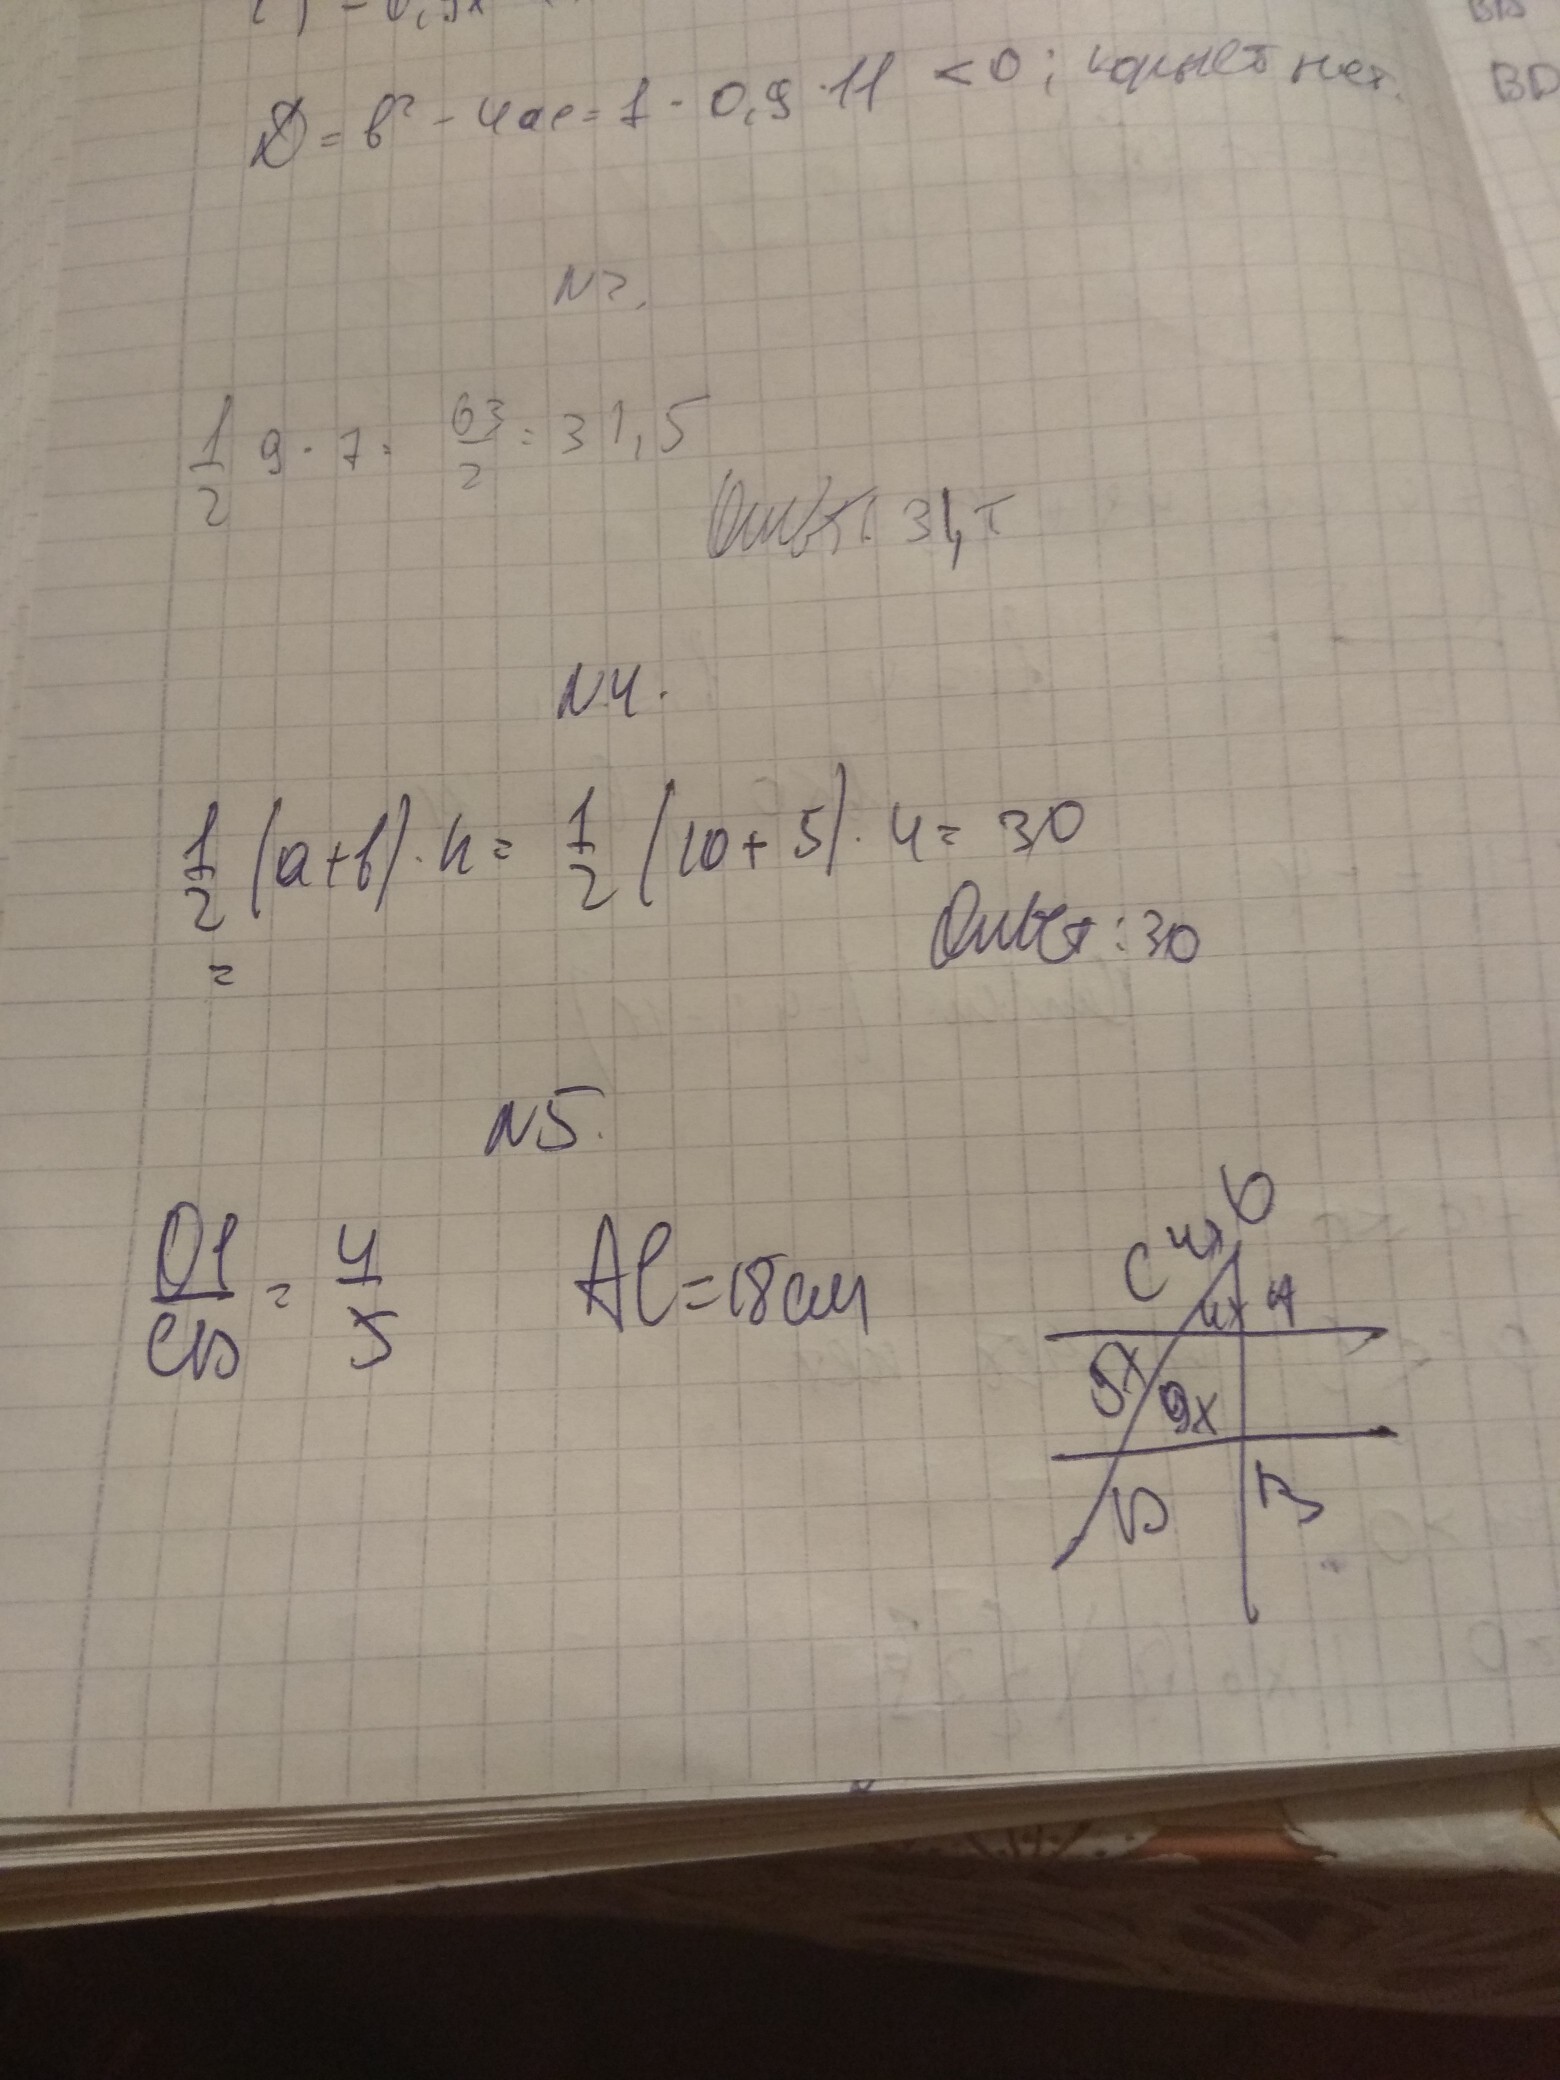 BD
D = b² - 4ac = 1 - 0,9 · 11 < 0; корней нет.
N2.
1/2 9 · 7 = 63/2 = 31,5
Ответ: 31,5
N4.
1/2 (a+b) · h = 1/2 (10 + 5) · 4 = 30
=
Ответ: 30
N5.
OC/CD = 4/5 AC = 18 см
O
C 4x
4x A
5x
9x
D B